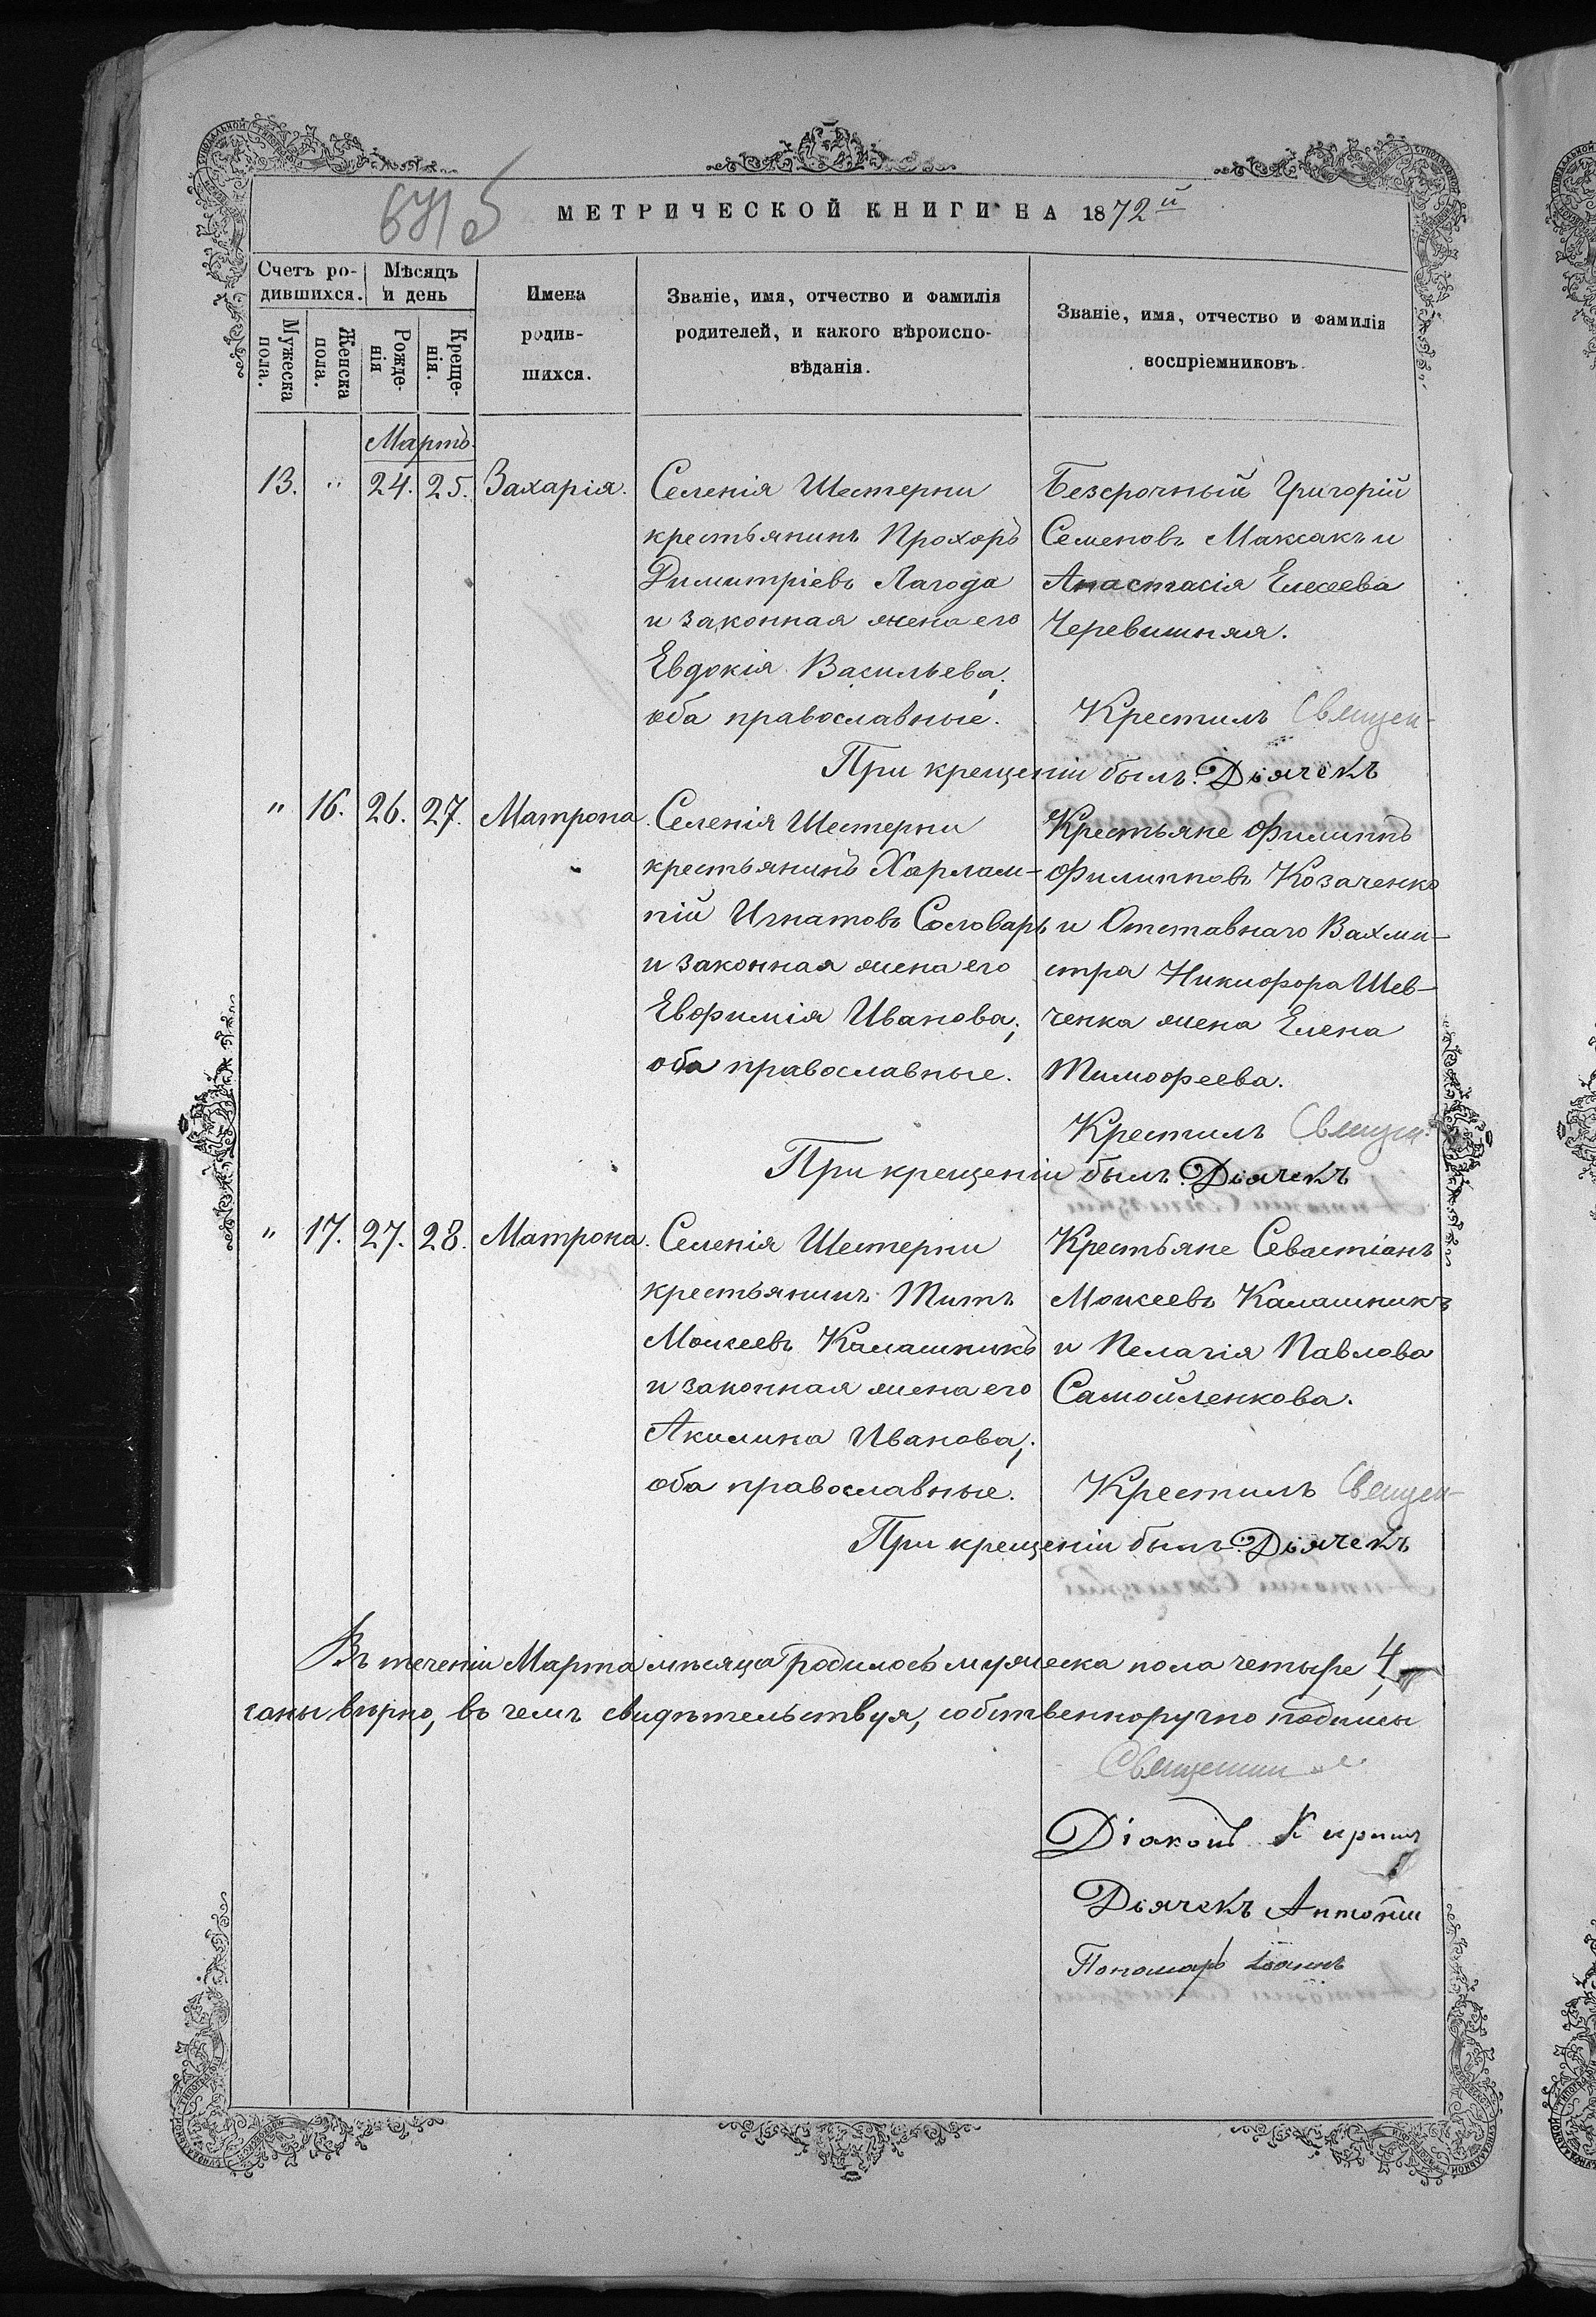 МЕТРИЧЕСКОЙ КНИГИ НА 1872й
Счетъ ро-
дившихся.
Мѣсяцъ
и день
Мужеска
пола.
Женска
пола.
Рожде-
нія
Креще-
нія.
Имена
родив-
шихся.
Званіе, имя, отчество и фамилія
родителей, и какого вѣроиспо-
вѣданія.
Званіе, имя, отчество и фамилія
воспріемниковъ.
Мартъ.
13. " 24. 25. Захарія.
Селенія Шестерни
крестьянинъ Прохоръ
Димитріевъ Лагода
и законная жена его
Евдокія Васильева;
оба православные.
Безсрочный Григорій
Семеновъ Максакъ и
Анастасія Елисеева
Черевишняя.
Крестилъ Священ-
При крещеніи былъ: Дьячекъ
" 16. 26. 27. Матрона.
Селенія Шестерни
крестьянинъ Харлам-
пій Игнатовъ Соловарь
и законная жена его
Евфимія Иванова;
оба православные.
Крестьяне Филиппъ
Филипповъ Козаченко
и Отставнаго Вахми-
стра Никифора Шев-
ченка жена Елена
Тимофеева.
Крестилъ Священ-
При крещеніи былъ: Дьячекъ
" 17. 27. 28. Матрона.
Селенія Шестерни
крестьянинъ Титъ
Моисеевъ Калашникъ
и законная жена его
Акилина Иванова;
оба православные.
Крестьяне Севастіанъ
Моисеевъ Калашникъ
и Пелагія Павлова
Самойленкова.
Крестилъ Священ-
При крещеніи былъ: Дьячекъ
Въ теченіи Марта мѣсяца родилось мужеска пола четыре 4,
саны вѣрно, въ чемъ свидѣтельствуя, собственноручно подписы
Священни
Діаконъ Кирилъ
Дьячекъ Антоній
Пономарь Іоаннъ